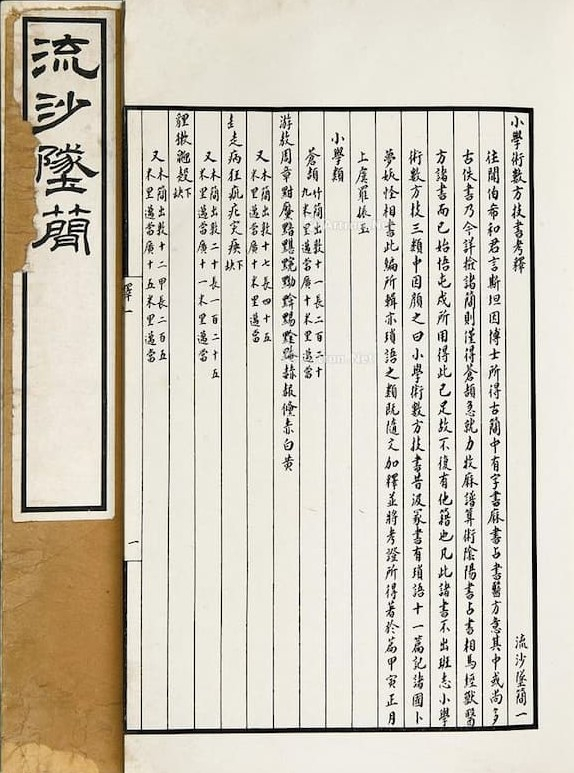 流沙墜簡
小學術數方技書考釋
流沙墜簡一
往聞伯希和君言斯坦因博士所得古簡中有字書厤書占書醫方意其中或尚多
古佚書乃今詳撿諸簡則僅得蒼頡急就力牧厤譜算術陰陽書占書相馬經獸醫
方諸書而已始悟屯戍所用得此已足故不復有他籍也凡此諸書不出班志小學
術數方技三類中因顏之曰小學術數方技書昔汲冢書有瑣語十一篇記諸國卜
夢妖怪相書此編所輯亦瑣語之類既隨文加釋並將考證所得著於篇甲寅正月
上虞羅振玉
小學類
蒼頡 竹簡出敦十一長二百二十
九米里邁當廣十米里邁當
游敖周章黚黶黯赫赧儵赤白黄
又 木簡出敦十七長四十五
米里邁當廣十五米里邁當
走病狂疵疕灾疾 下缺
又 木簡出敦二十長一百二十五
米里邁當廣十一米里邁當
貍獺 下缺
又 木簡出敦十二甲長二百五
米里邁當廣十五米里邁當
釋一
一
Artron.Net